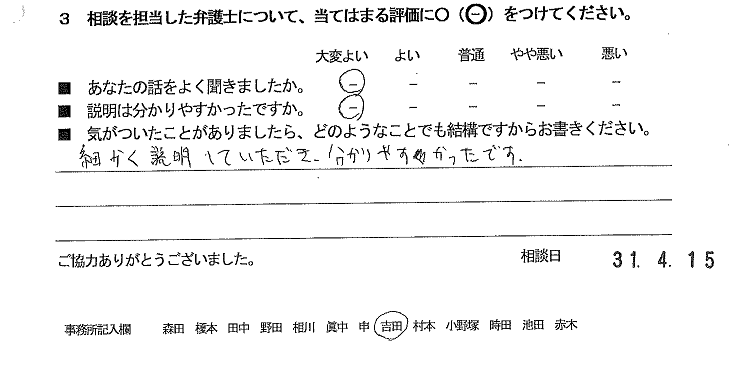 3 相談を担当した弁護士について、当てはまる評価に○（⊖）をつけてください。
大変よい よい 普通 やや悪い 悪い
■ あなたの話をよく聞きましたか。 － － － － －
■ 説明は分かりやすかったですか。 － － － － －
■ 気がついたことがありましたら、どのようなことでも結構ですからお書きください。
細かく説明していただき、分かりやすかったです。
ご協力ありがとうございました。 相談日 31. 4. 15
事務所記入欄 森田 榎本 田中 野田 相川 眞中 申 吉田 村本 小野塚 時田 池田 赤木